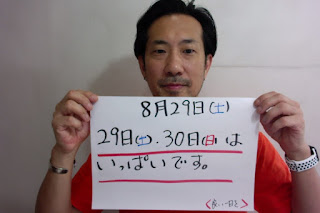 8月29日(土)
29日(土)、30日(日)は
いっぱいです。